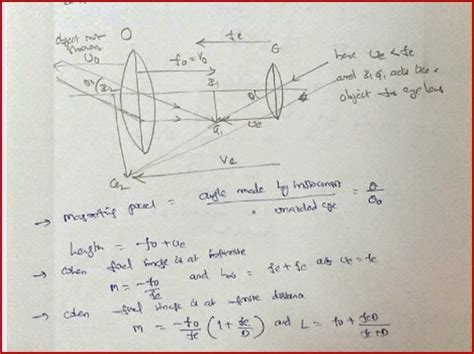 object not
O
fe
U0
f0 = V0
E
here Ue < fe
B1
and B1 A1 acts like a
object for eye lens
A1
Ue
Ve
→ magnifying power = angle made by instrument / unaided eye = θ / θ0
Length = -f0 + ue
→ when final image is at infinite
M = -f0 / fe and L∞ = fe + fe as ue = fe
→ when final image is at finite distance
M = -f0 / fe (1 + fe / D) and L = f0 + feD / fe + D